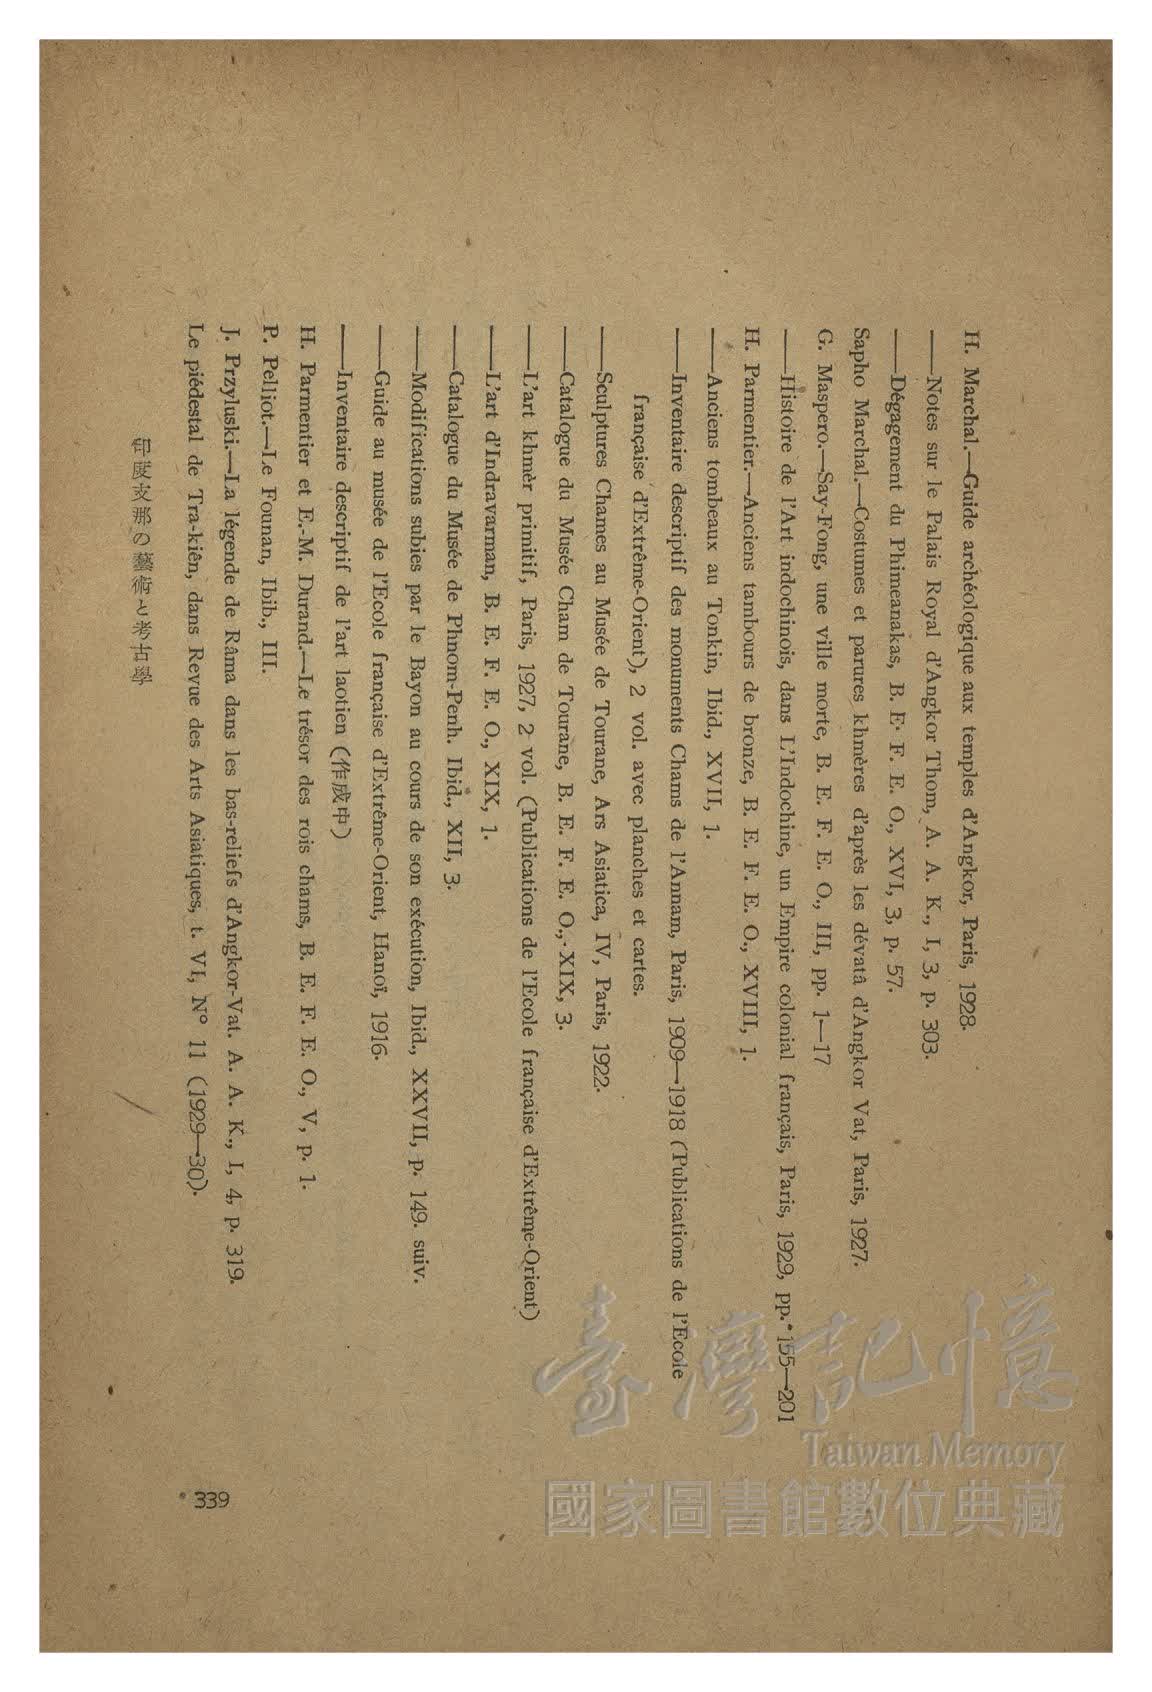 H. Marchal.—Guide archéologique aux temples d'Angkor, Paris, 1928.
——Notes sur le Palais Royal d'Angkor Thom, A. A. K., I, 3, p. 303.
——Dégagement du Phimeanakas, B. E. F. E. O., XVI, 3, p. 57.
Sapho Marchal.—Costumes et parures khmères d'après les dévatâ d'Angkor Vat, Paris, 1927.
G. Maspero.—Say-Fong, une ville morte, B. E. F. E. O., III, pp. 1—17
——Histoire de l'Art indochinois, dans L'Indochine, un Empire colonial français, Paris, 1929, pp. 155—201
H. Parmentier.—Anciens tambours de bronze, B. E. F. E. O., XVIII, 1.
——Anciens tombeaux au Tonkin, Ibid., XVII, 1.
——Inventaire descriptif des monuments Chams de l'Annam, Paris, 1909—1918 (Publications de l'Ecole
française d'Extrême-Orient), 2 vol. avec planches et cartes.
——Sculptures Chames au Musée de Tourane, Ars Asiatica, IV, Paris, 1922.
——Catalogue du Musée Cham de Tourane, B. E. F. E. O., XIX, 3.
——L'art khmèr primitif, Paris, 1927, 2 vol. (Publications de l'Ecole française d'Extrême-Orient)
——L'art d'Indravarman, B. E. F. E. O., XIX, 1.
——Catalogue du Musée de Phnom-Penh. Ibid., XII, 3.
——Modifications subies par le Bayon au cours de son exécution, Ibid., XXVII, p. 149. suiv.
——Guide au musée de l'Ecole française d'Extrême-Orient, Hanoï, 1916.
——Inventaire descriptif de l'art laotien (作成中)
H. Parmentier et E.-M. Durand.—Le trésor des rois chams, B. E. F. E. O., V, p. 1.
P. Pelliot.—Le Founan, Ibib., III.
J. Przyluski.—La légende de Râma dans les bas-reliefs d'Angkor-Vat. A. A. K., I, 4, p. 319.
Le piédestal de Tra-kiên, dans Revue des Arts Asiatiques, t. VI, N° 11 (1929—30).
印度支那の藝術と考古學
339
臺灣記憶
Taiwan Memory
國家圖書館數位典藏